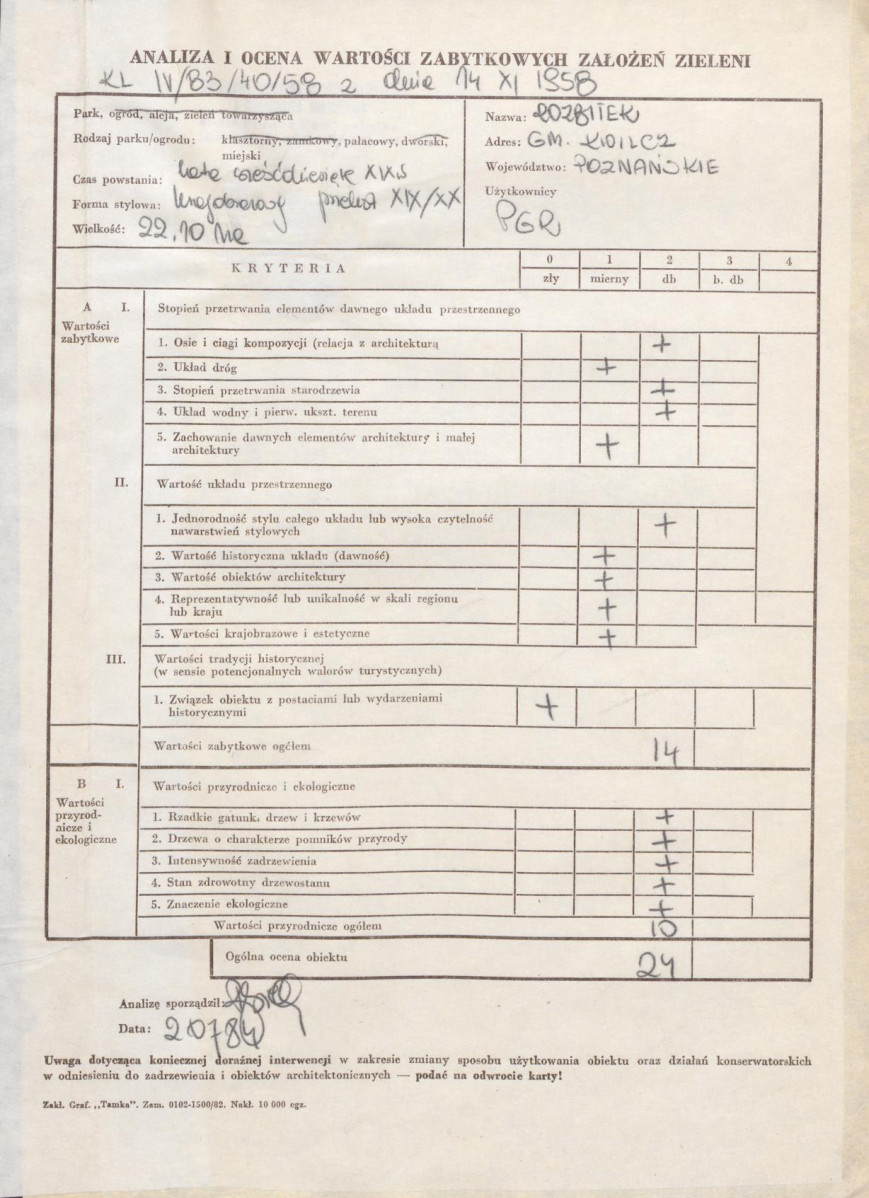 ANALIZA I OCENA WARTOŚCI ZABYTKOWYCH ZAŁOŻEŃ ZIELENI
KL IV/83/40/58 z dnia 14 XI 1958
Park, ogród, aleja, zieleń towarzysząca
Rodzaj parku/ogrodu: klasztorny, zamkowy, pałacowy, dworski,
miejski
Czas powstania: lata XIX
Forma stylowa: krajobrazowy przełom XIX/XX
Wielkość: 22,10 ha
Nazwa: ROZBITEK
Adres: GM. KWILCZ
Województwo: POZNAŃSKIE
Użytkownicy
PGR
KRYTERIA
0 1 2 3 4
zły mierny db b. db
A I. Stopień przetrwania elementów dawnego układu przestrzennego
Wartości
zabytkowe
1. Osie i ciągi kompozycji (relacja z architekturą +
2. Układ dróg +
3. Stopień przetrwania starodrzewia +
4. Układ wodny i pierw. ukszt. terenu +
5. Zachowanie dawnych elementów architektury i małej
architektury +
II. Wartość układu przestrzennego
1. Jednorodność stylu całego układu lub wysoka czytelność
nawarstwień stylowych +
2. Wartość historyczna układu (dawność) +
3. Wartość obiektów architektury +
4. Reprezentatywność lub unikalność w skali regionu
lub kraju +
5. Wartości krajobrazowe i estetyczne +
III. Wartości tradycji historycznej
(w sensie potencjonalnych walorów turystycznych)
1. Związek obiektu z postaciami lub wydarzeniami
historycznymi +
Wartości zabytkowe ogółem 14
B I. Wartości przyrodnicze i ekologiczne
Wartości
przyrod-
nicze i
ekologiczne
1. Rzadkie gatunki drzew i krzewów +
2. Drzewa o charakterze pomników przyrody +
3. Intensywność zadrzewienia +
4. Stan zdrowotny drzewostanu +
5. Znaczenie ekologiczne +
Wartości przyrodnicze ogółem 10
Ogólna ocena obiektu 24
Analizę sporządził:
Data:
Uwaga dotycząca koniecznej doraźnej interwencji w zakresie zmiany sposobu użytkowania obiektu oraz działań konserwatorskich
w odniesieniu do zadrzewienia i obiektów architektonicznych — podać na odwrocie karty!
Zakł. Graf. „Tamka”. Zam. 0102-1500/82. Nakł. 10 000 egz.